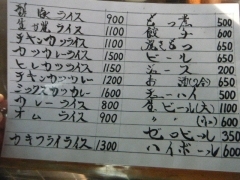 ライス 900
生姜ライス 1100
チキンカツライス 1100
カツカレーライス 1100
ヒレカツライス 1100
チキンカツカレー 1200
ミックスカツカレー 1600
カレーライス 800
オムライス 900
カキフライライス 1300
もつ煮 500
餃子 600
500
ビール 650
200
チューハイ 500
生ビール(大) 1100
〃 600
ビール 350
ハイボール 600